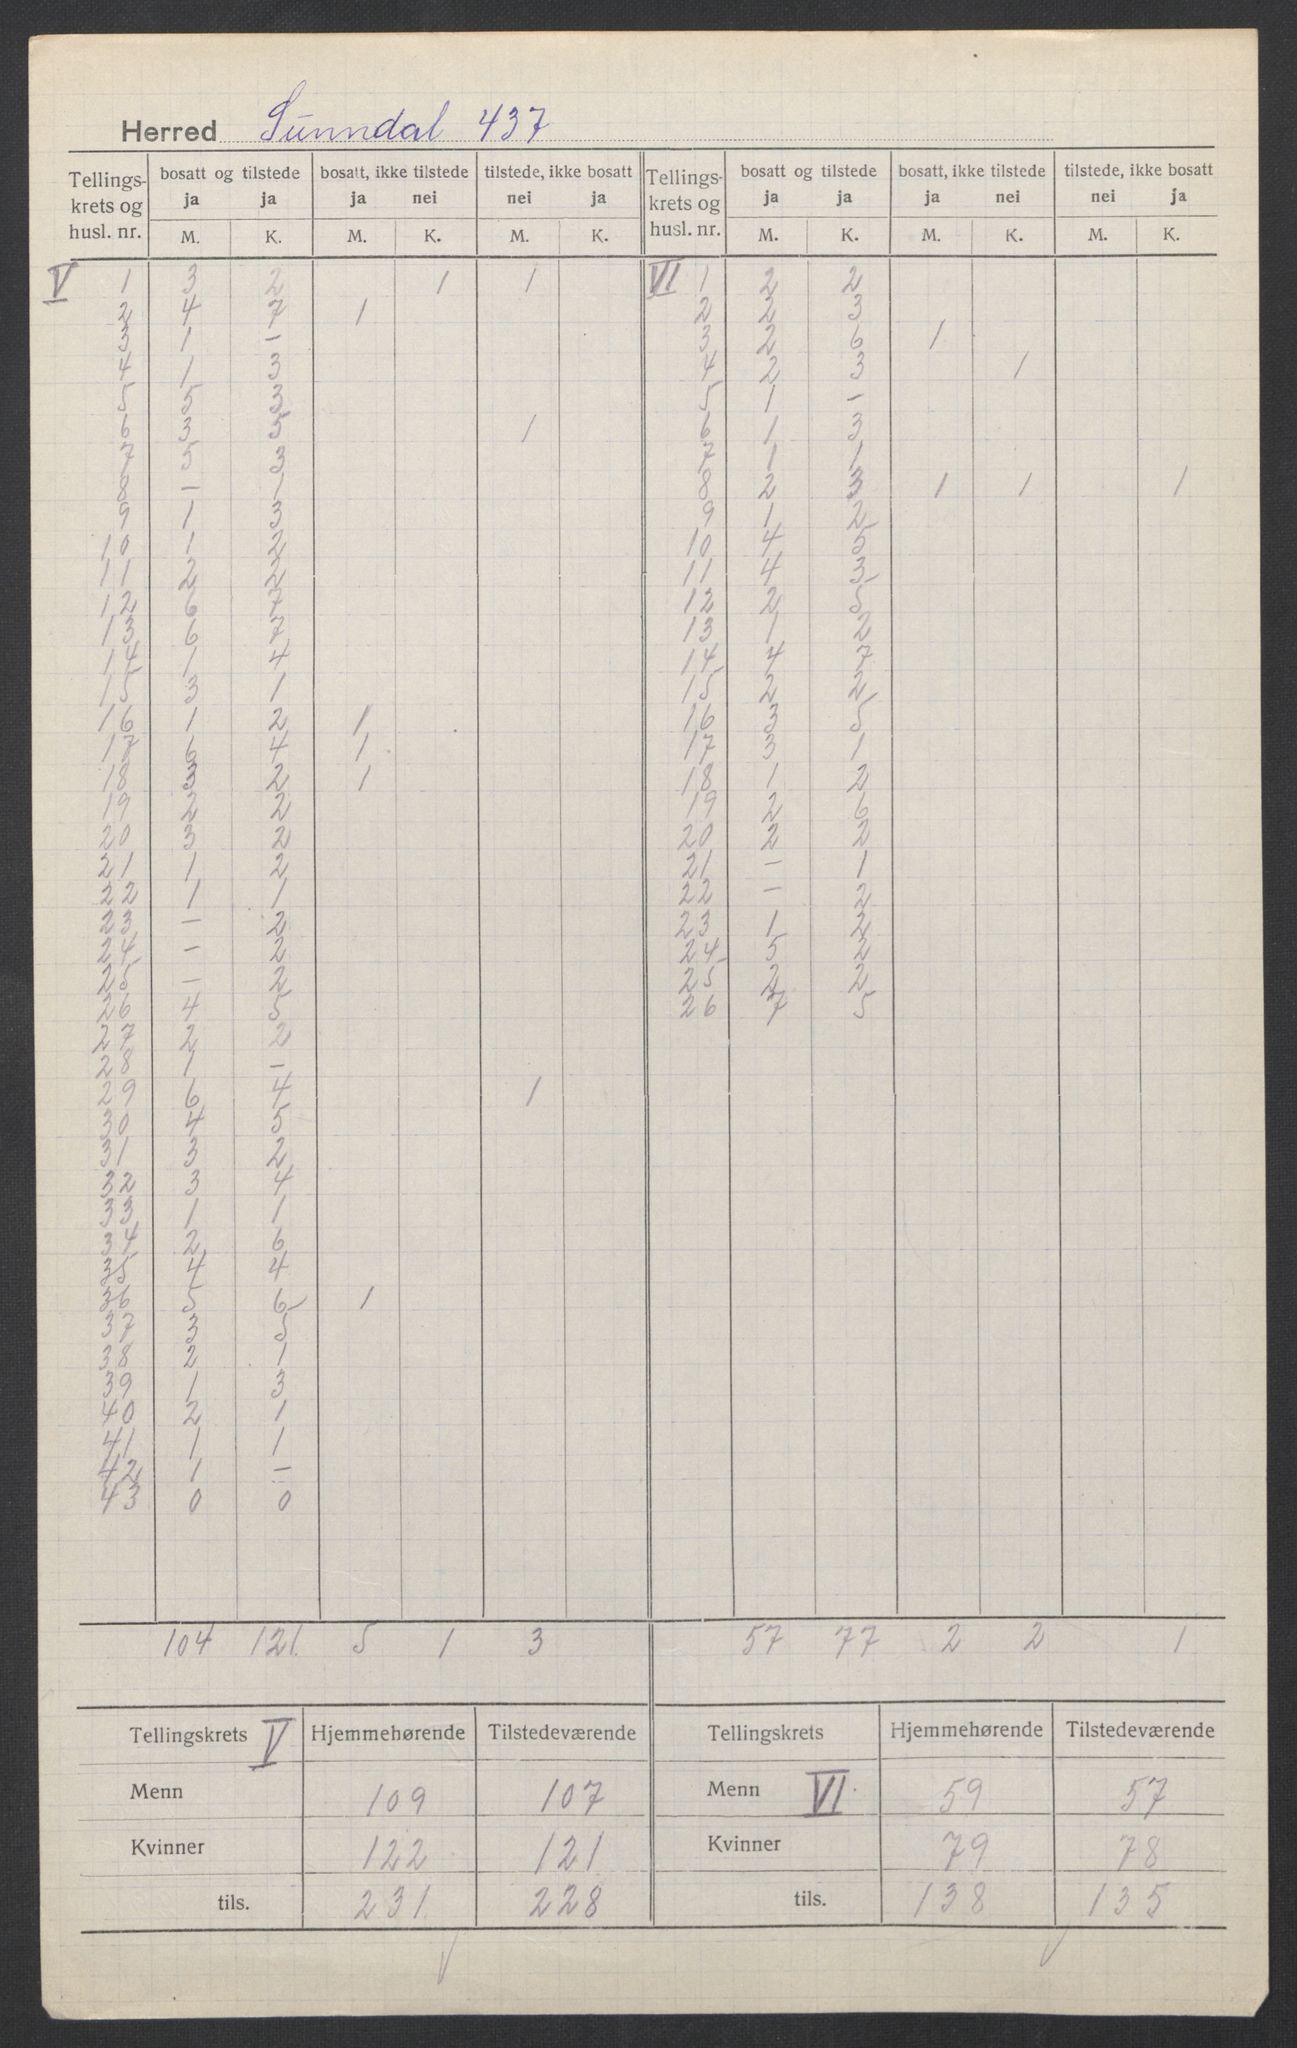 Herred Sunndal 437
Tellings- krets og husl. nr. | bosatt og tilstede | bosatt, ikke tilstede | tilstede, ikke bosatt | Tellings- krets og husl. nr. | bosatt og tilstede | bosatt, ikke tilstede | tilstede, ikke bosatt
ja ja | ja nei | nei ja | ja ja | ja nei | nei ja
M. K. M. K. M. K. | M. K. M. K. M. K.
V 1 3 2 1 1 | VI 1 2 2
2 4 7 1 | 2 2 3
3 1 - | 3 2 6 1
4 1 3 | 4 2 3 1
5 5 3 | 5 1 -
6 3 5 1 | 6 1 3
7 5 3 | 7 1 1
8 - 1 | 8 2 3 1 1 1
9 1 3 | 9 1 2
10 1 2 | 10 4 5
11 2 2 | 11 4 3
12 6 7 | 12 2 5
13 6 7 | 13 1 2
14 1 4 | 14 4 7
15 3 1 | 15 2 2
16 1 2 1 | 16 3 5
17 6 4 1 | 17 3 1
18 3 2 1 | 18 1 2
19 2 2 | 19 2 6
20 3 2 | 20 2 2
21 1 2 | 21 - 1
22 1 1 | 22 - 2
23 - 2 | 23 1 2
24 - 2 | 24 5 2
25 - 2 | 25 2 2
26 4 5 | 26 7 5
27 2 2
28 1 -
29 6 4 1
30 4 5
31 3 2
32 3 4
33 1 1
34 2 6
35 4 4
36 5 6 1
37 3 5
38 2 1
39 1 3
40 2 1
41 1 1
42 1 -
43 0 0
104 121 5 1 3 | 57 77 2 2 1
Tellingskrets V | Hjemmehørende | Tilstedeværende | Tellingskrets VI | Hjemmehørende | Tilstedeværende
Menn 109 107 | Menn 59 57
Kvinner 122 121 | Kvinner 79 78
tils. 231 228 | tils. 138 135